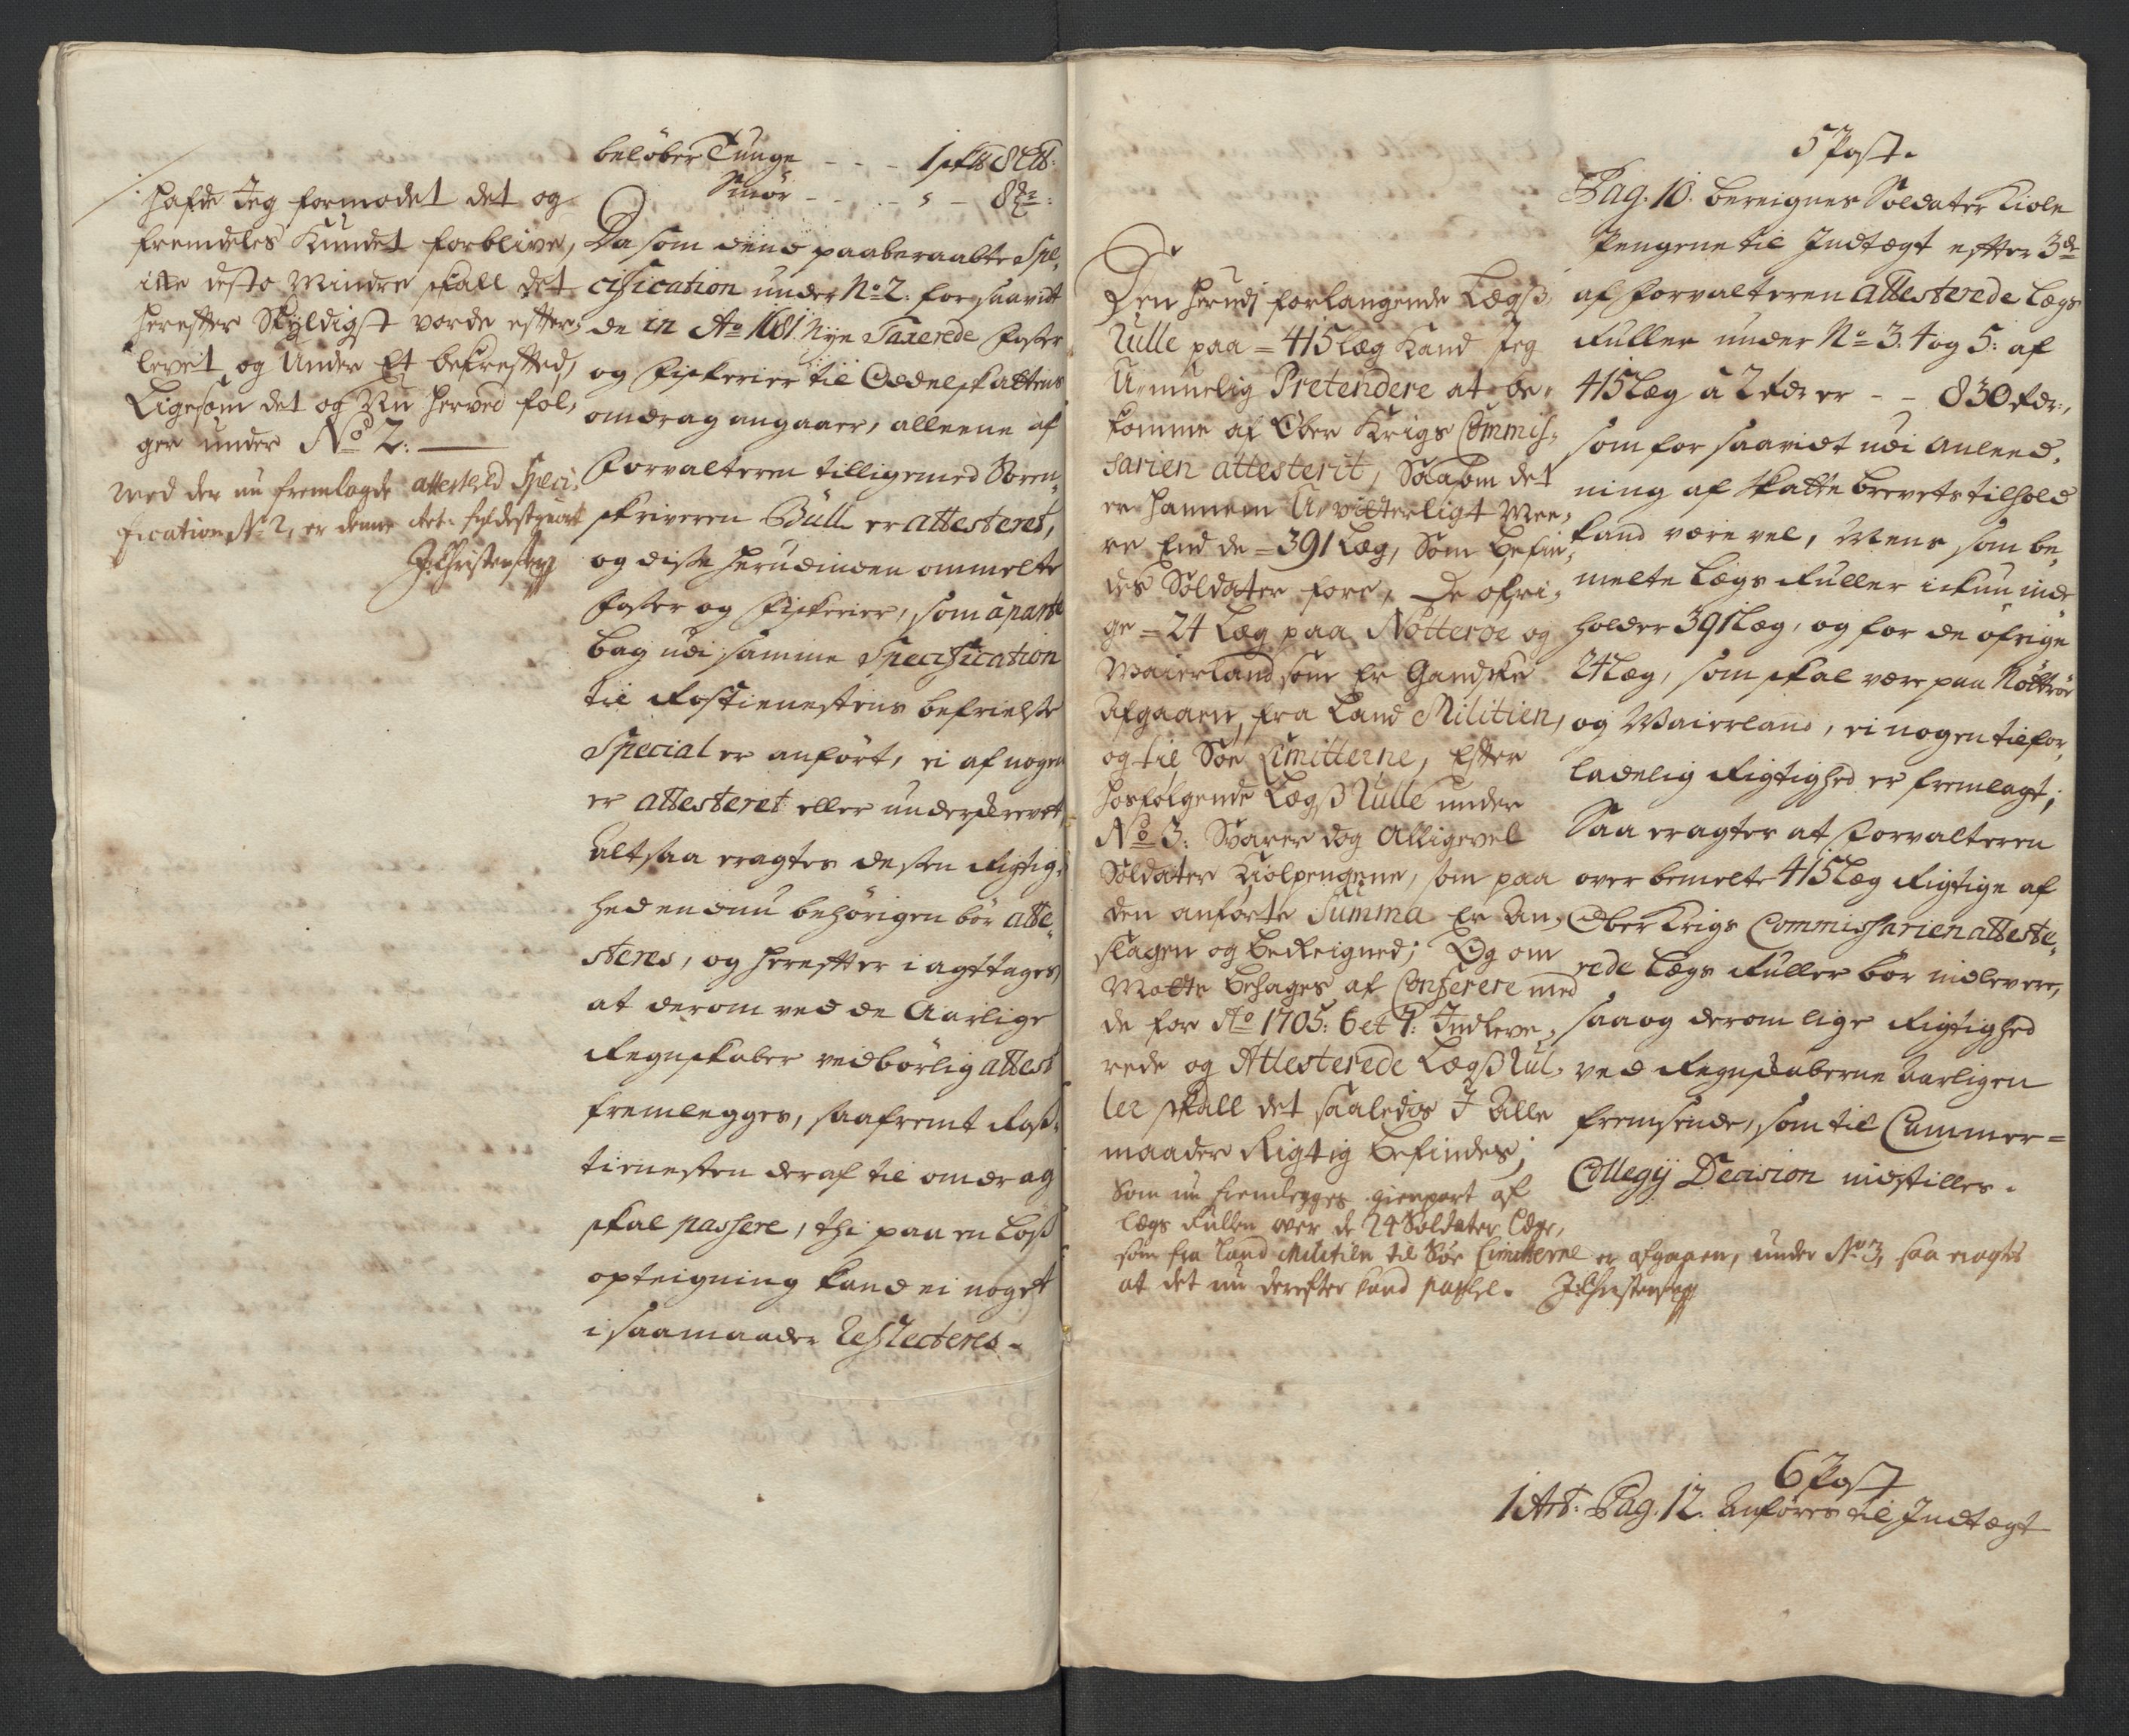 hafde Jeg formodet det og
fremdeles kundet forblive,
icke desto Mindre skall det
herefter skyldigst vorde efter-
levet og Under Et bekrefted,
Ligesom det og Nu herved føl-
ger under No 2:
Med den nu fremlagde attesterd Speci-
fication No 2, er denne Art: fyldestgiort
J: Christensen
beløber Tunge - - - 1 sk℔ 8 L℔:
Smör - - - - 8 do:
Da som dend paaberaabte Spe-
cification under No 2: for saavidt
de in Ao 1681 Nye Taxerede Poster
og Fiskerier til Oddelskattens
omdrag angaaer, alleene af
Forvalteren tilligemed Soren-
skriveren Büll er attesteret,
og disse herudinden ommelte
Poster og Fiskerier, som aparte
bag udi samme Specification
til Rostienestens befrielse
Special er anført, ei af nogen
er attesteret eller underskrevet,
altsaa eragtes dessen Rigtig-
hed endnu behörigen bör atte-
steres, og herefter i agttages,
at derom ved de Aarlige
Regnskaber vedbörlig attest
fremlegges, saafremt Ross-
tienesten deraf til omdrag
skal passere, thi paa en Løss
opteigning kand ei noget
i saamaader Reflecteres.
Den herudj forlangende Lægss
Rulle paa = 415 Læg Kand Jeg
U-muelig Pretendere at be-
komme af Ober Krigs Commis-
sarien attesterit, Saasom det
er hannem U-vitterligt Mee-
re End de = 391 Læg, Som befin-
des Soldater fore, De øfri-
ge = 24 Læg paa Nøtterøe og
Maierland som Er Gandske
Afgaaen, fra Land Militien,
og til Søe Limitterne, Efter
hosfølgende Lægss Rulle under
No 3: Svarer dog Alligevel
Soldater Kiolpengene, som paa
den anførte Summa Er An-
slagen og Bereigned; Og om
Motte behages af Conferere med
de for Ao 1705: 6 et 7: Indleve-
rede og Attesterede Lægss Rul-
ler skall det saaledis I Alle
maader Rigtig befindes;
Som nu fremlegges gienpart af
Lægs Rullen over de 24 Soldater Læge,
som fra Land Militien til Søe Limitterne er afgaaen, under No 3, saa eragtes
at det nu derefter kand passere. J: Christensen
5 Post.
Pag. 10. bereignes Soldater Kiole
Pengene til Indtægt efter 3de
af Forvalteren attesterede Lægs
Ruller under No 3. 4 og 5: af
415 Læg à 2 Rdr er - - 830 Rdr:,
som for saavidt udi anleed-
ning af Skatte Brevets tilhold
kand være vel, Mens som be-
melte Lægs Ruller ickun inde
holder 391 Læg, og for de øfrige
24 Læg, som skal være paa Nøtterøe
og Maierland, ei nogen tilfor-
ladelig Rigtighed er fremlagt;
Saa eragtes at Forvalteren
over bemelte 415 Læg Rigtige af
Ober Krigs Commissarien atteste-
rede Lægs Ruller bør indlevere,
saa og derom lige Rigtighed
ved Regnskaberne Aarligen
fremsende, som til Cammer=
Collegij Decision indstilles.
6 Post
1 Art. Pag. 12. Anføres til Indtægt